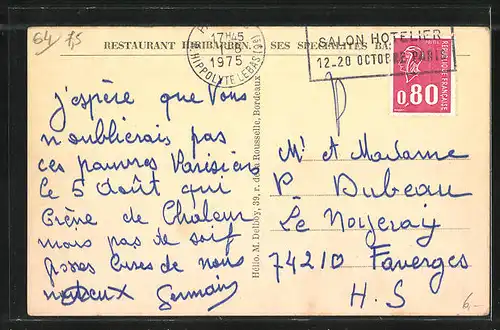 64 75
RESTAURANT HIRIBARREN. SES SPECIALITES BA
17H45
1975
HIPPOLYTE LEBAS (9e)
SALON HOTELIER
12-20 OCTOBRE PARIS
REPUBLIQUE FRANÇAISE
0,80
Hélio. M. Delboy, 39, r. de la Rousselle, Bordeaux
j'espère que Vous
n oublierais pas
ces pauvres Parisiens
le 5 Août qui
Crève de Chaleur
mais pas de soif
grosses bises de nous
deux Germain
Mr et Madame
P Dubeau
Le Noyeray
74210 Faverges
H. S
6,-